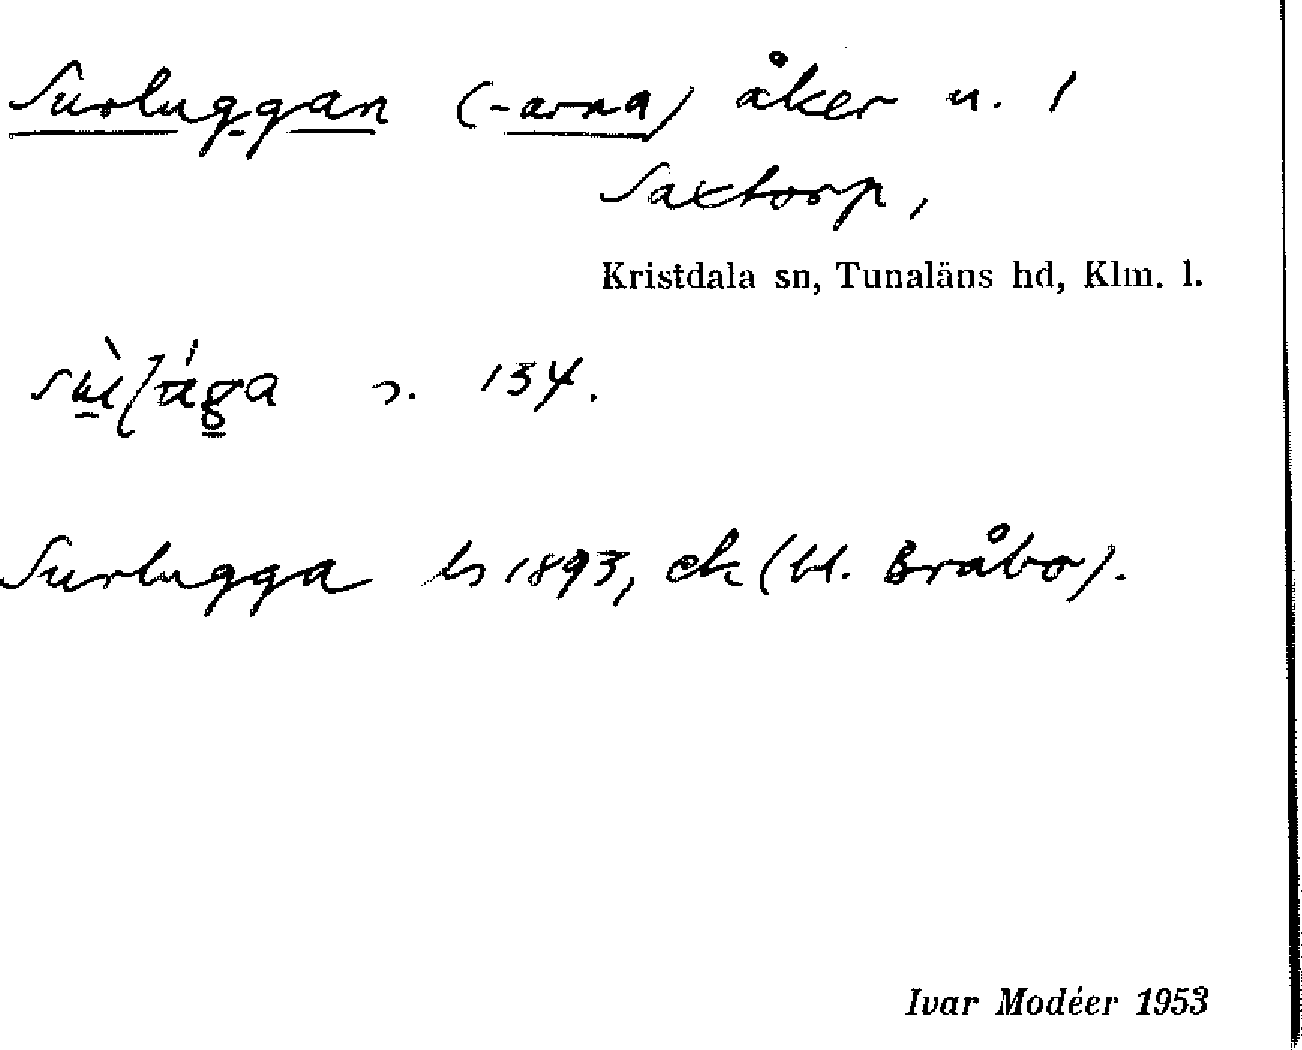 Surluggan (-arna) åker u. 1
Saxtorp,
Kristdala sn, Tunaläns hd, Klm. l.
s. 134.
Surlugga hs 1893, ek (bl. Bråbo).
Ivar Modéer 1953